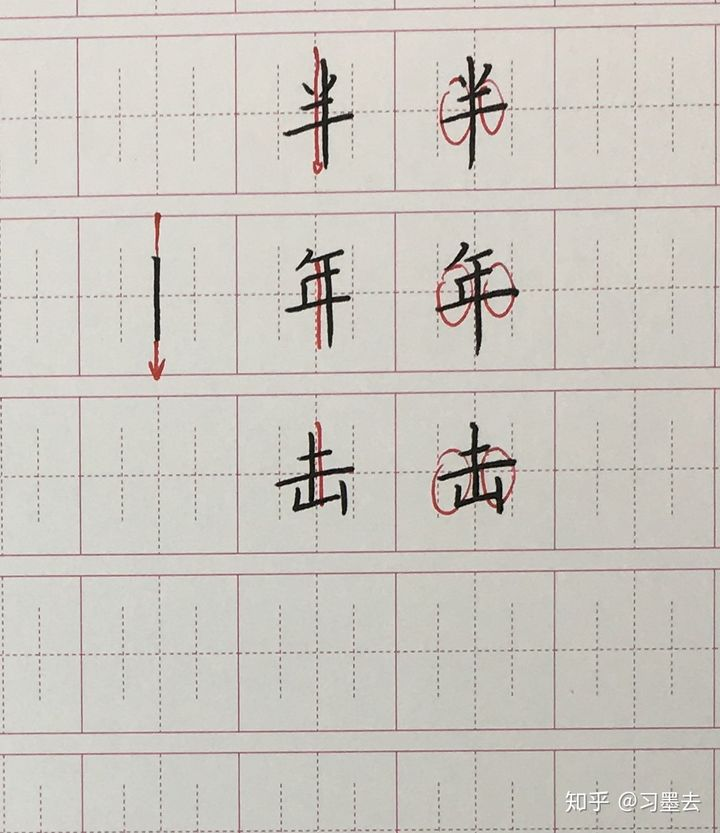 半 半
年 年
击 击
知乎 @习墨去